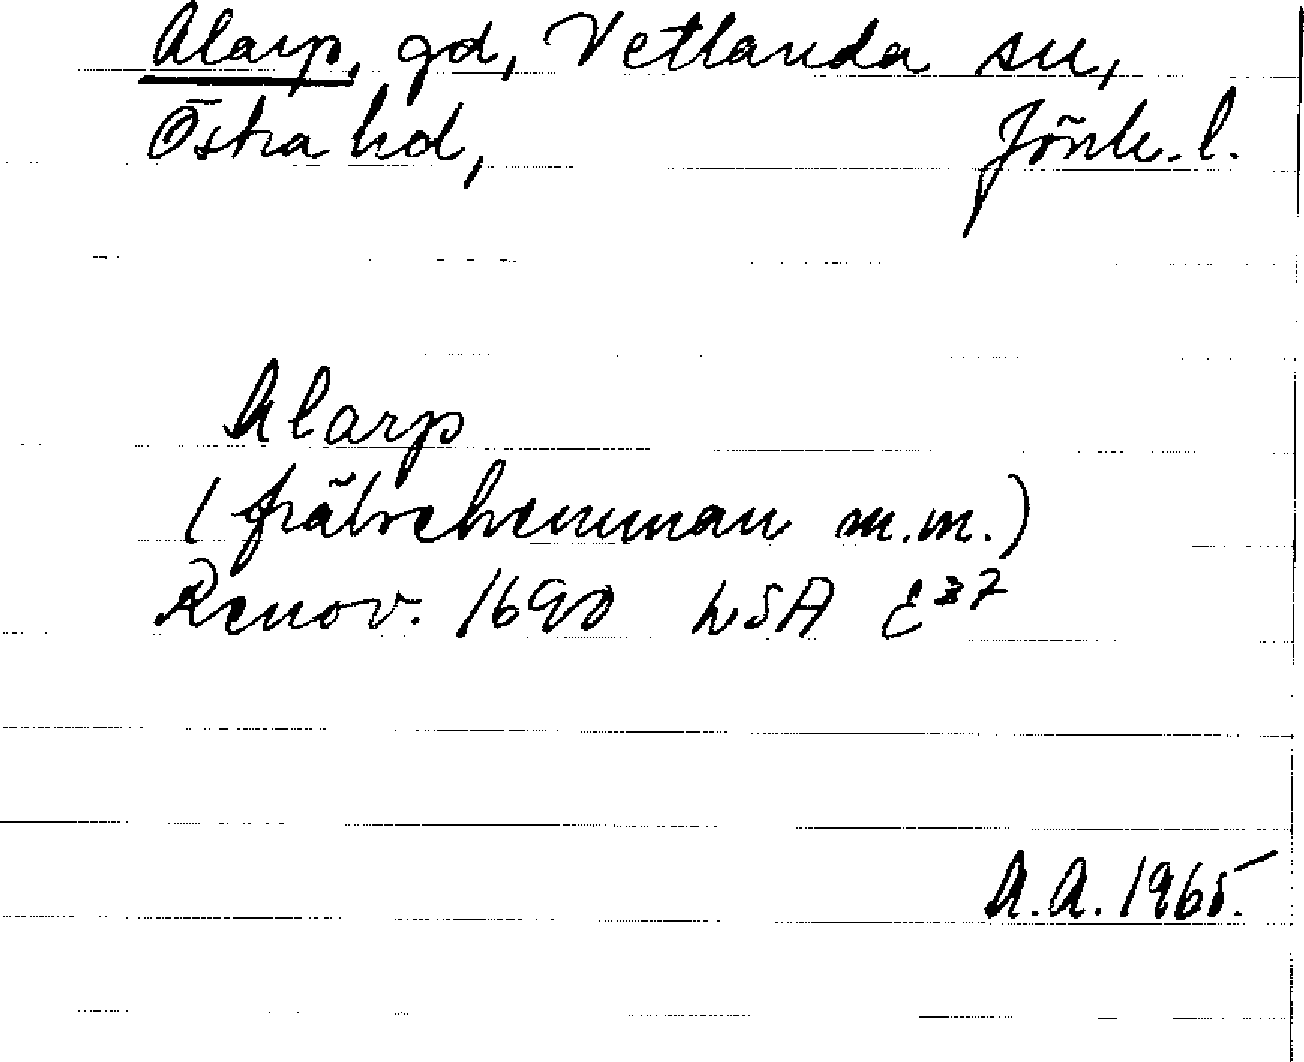 Alarp, gd, Vetlanda sn,
Östra hd, Jönk. l.
Alarp
(frälsehemman m.m.)
Renov. 1690 LSA E37
A.A. 1965.